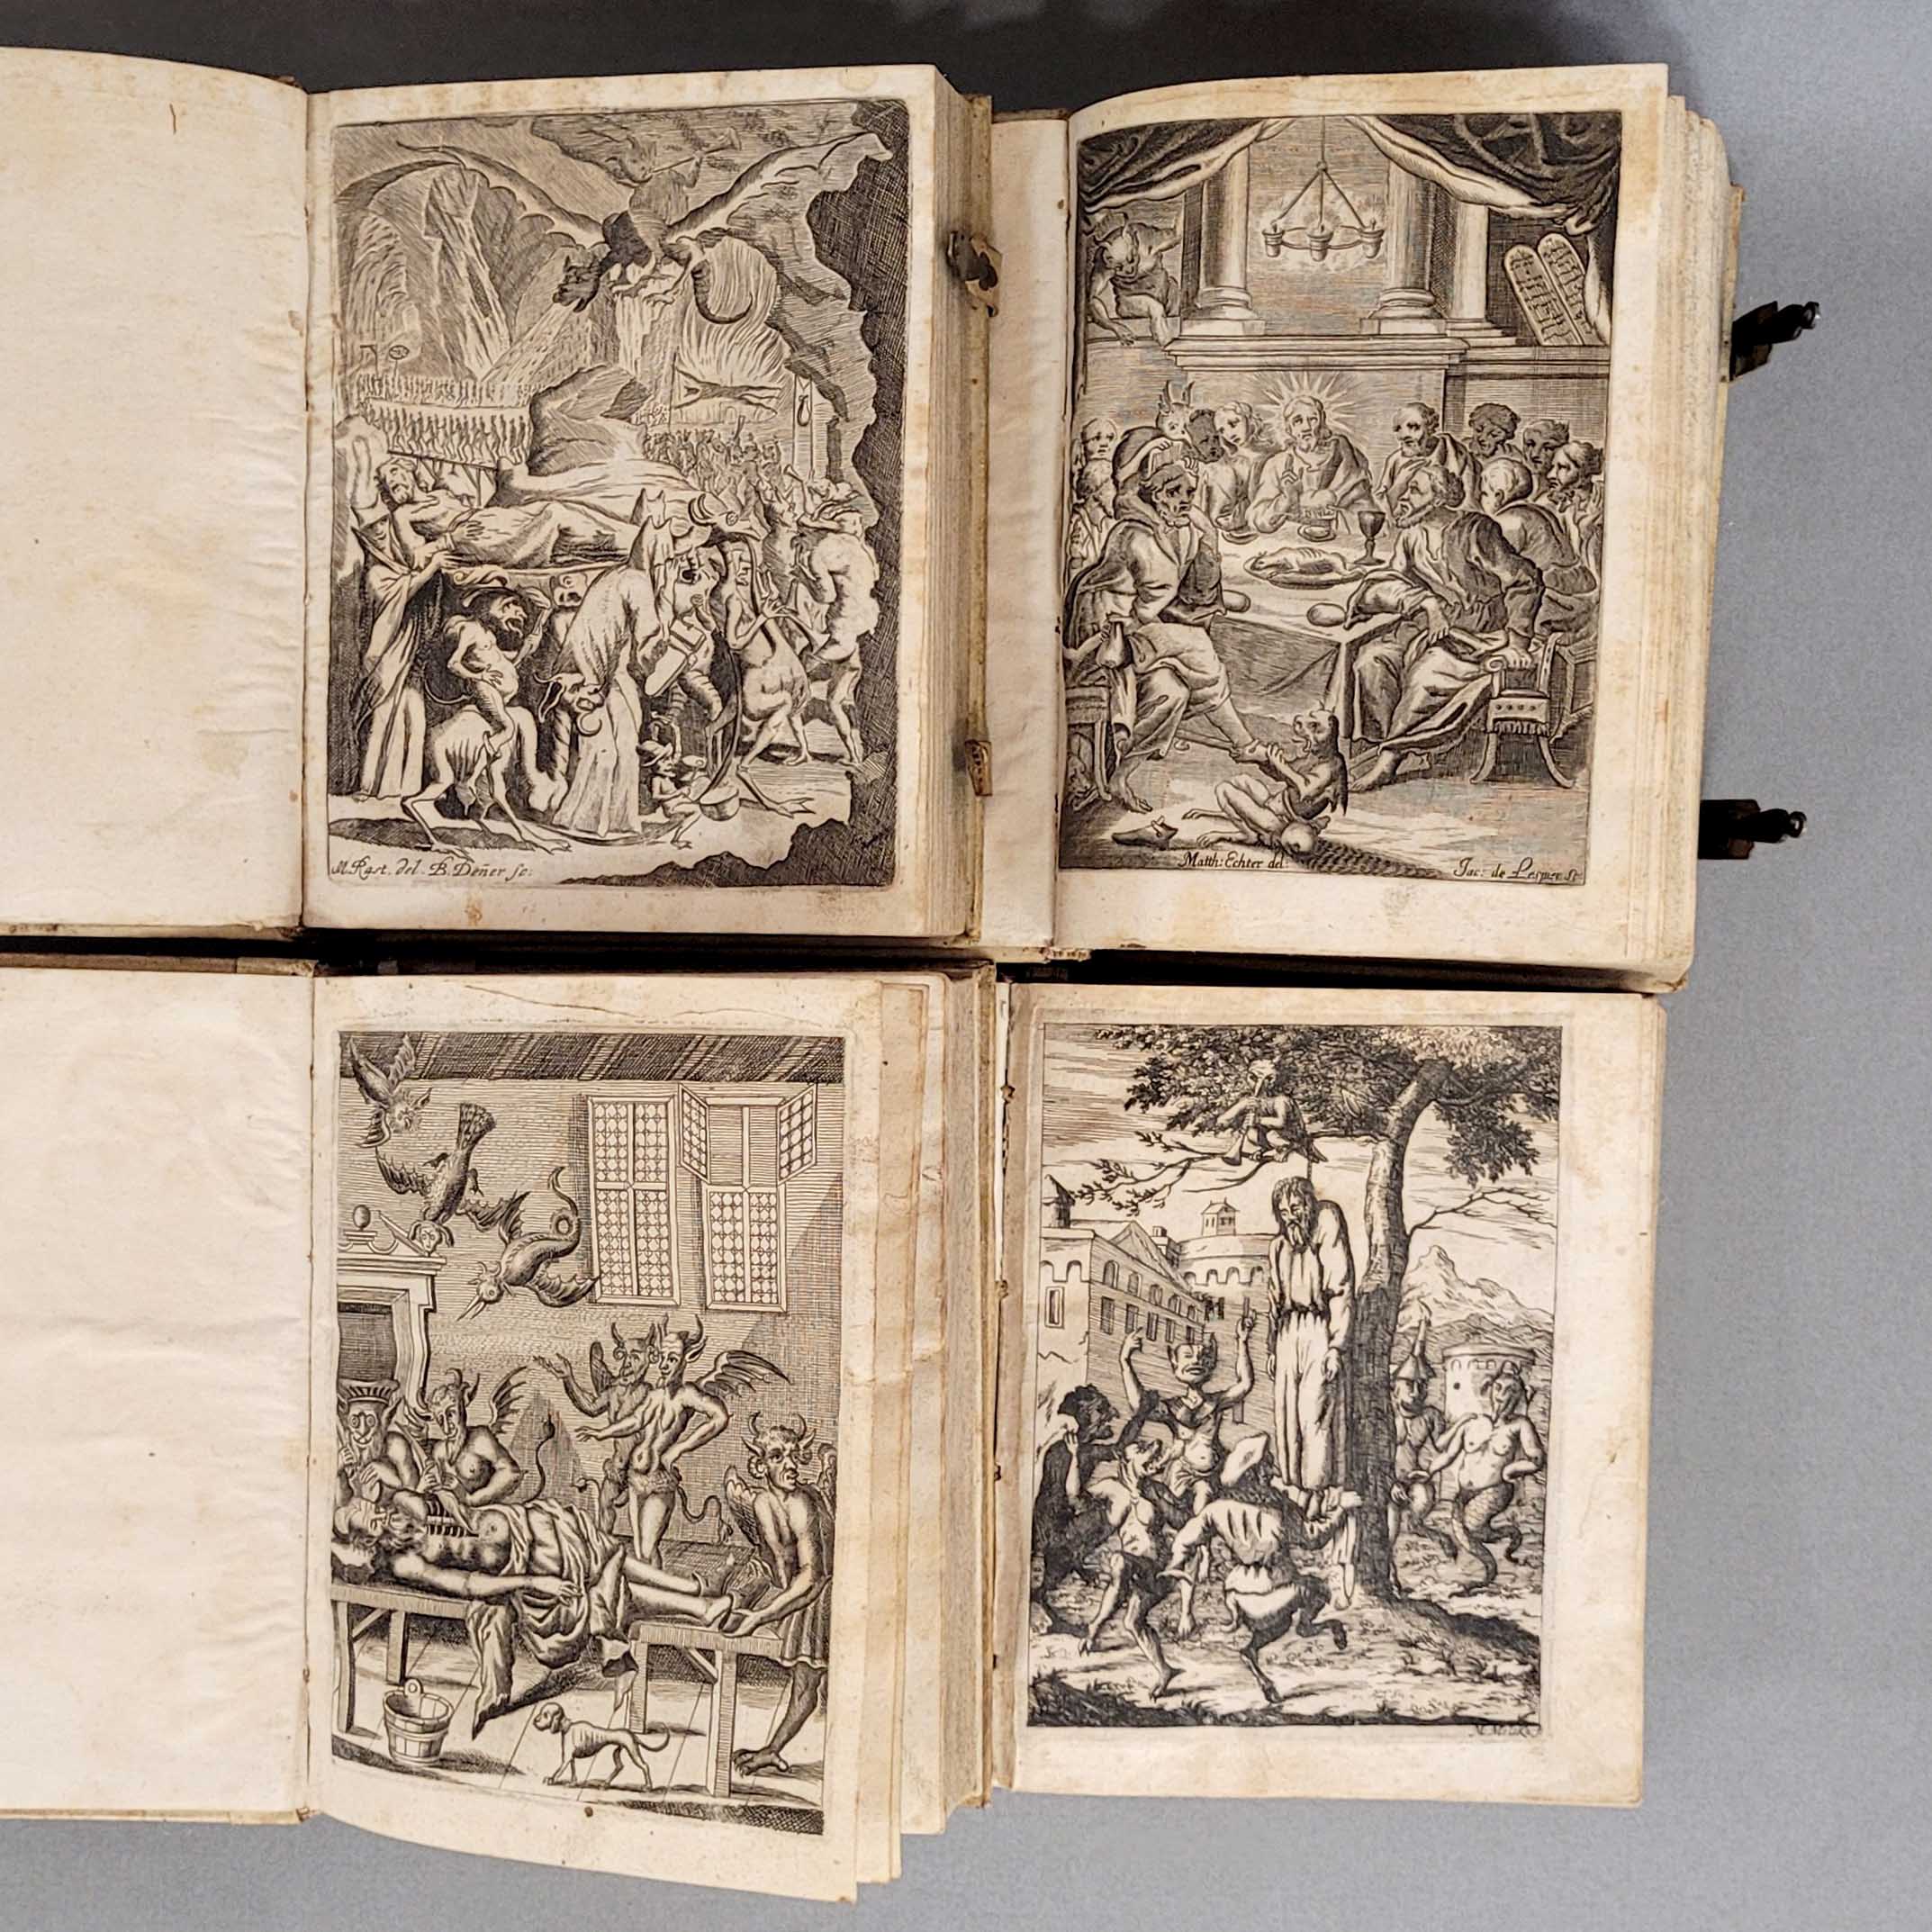 M. Rast. del. B. Deñer sc:
Matth: Echter del:
Jac: de Lespier sc